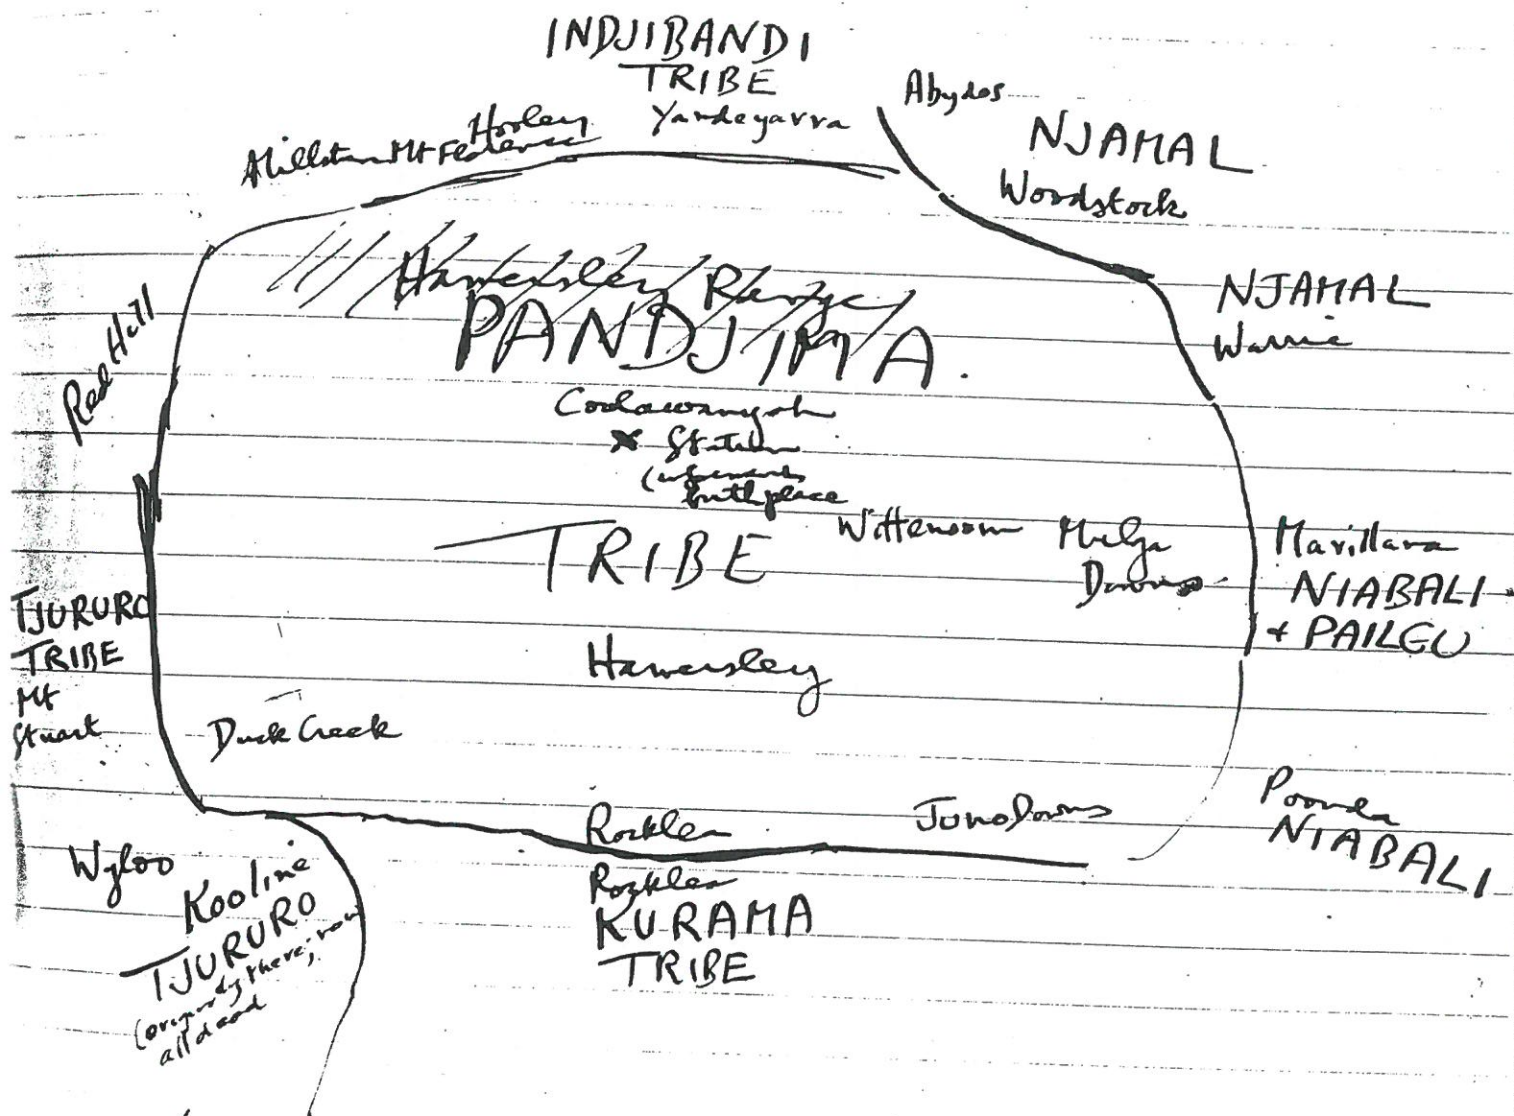 INDJIBANDI
TRIBE
Yandeyarra
Abydos
Hooley
Millstream Mt Florence
NJAMAL
Woodstock
Hamersley Range
PANDJIMA.
NJAMAL
Warrie
Red Hill
Coolawanyah
x Station
birthplace
Wittenoom
Mulga
Downs
TRIBE
Marillana
NIABALI
+ PAILGU
TJURURO
TRIBE
Mt
Stuart
Hamersley
Duck Creek
Rocklea
Juno Downs
Poonda
NIABALI
Wyloo
Kooline
TJURURO
(originally there; now
all dead
Rocklea
KURAMA
TRIBE